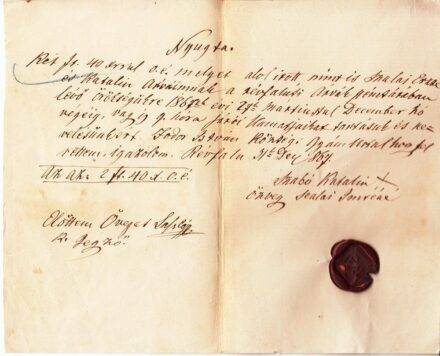 Nyugta.
Két ft. 40 xrról o.é. melyet alol irott, mint is Szalai
és Katalin Árváimnak a révfalusi Árvák pénztárában
lévő örökségükre 186 évi Martiustol December hó
végéig, vagy 9. hóra járó Kamatjaikat tartásuk és ne-
velésükért Fodor István Községi Gyám Úrtol hogy fel
vettem, igazolom. Révfalu Dec 867.
Az az: 2 ft. 40 x. o.é.
Szabó Katalin X
özvegy Szalai Imréné
Előttem Öveges
k. Jegyző.